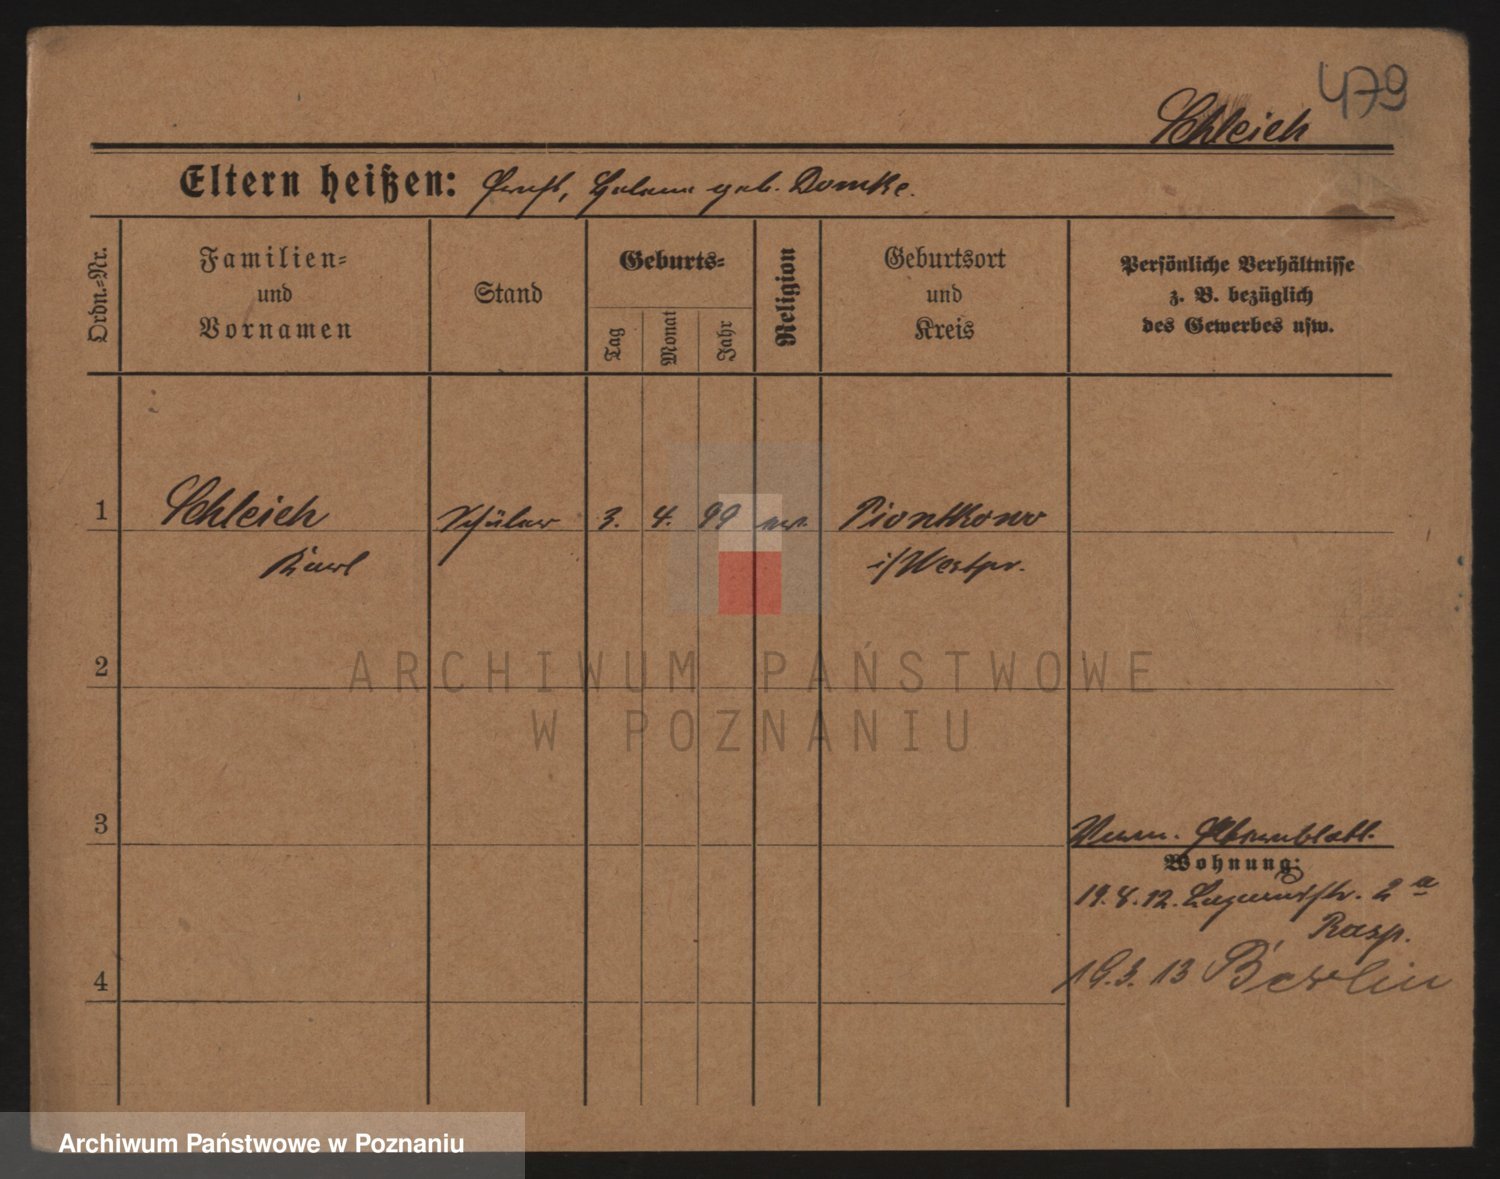 479
Schleich
Eltern heißen: Ernst, Helene geb. Domke.
Ordn.-Nr.
Familien-
und
Vornamen
Stand
Geburts-
Tag
Monat
Jahr
Religion
Geburtsort
und
Kreis
Persönliche Verhältnisse
z. B. bezüglich
des Gewerbes usw.
1 Schleich Schüler 3. 4. 99 ev. Piontkowo
Karl i/Westpr.
2
ARCHIWUM PAŃSTWOWE
W POZNANIU
3
Elternblatt.
Wohnung:
19.8.12. 2a
Rasp.
4
19.3.13 Berlin
Archiwum Państwowe w Poznaniu